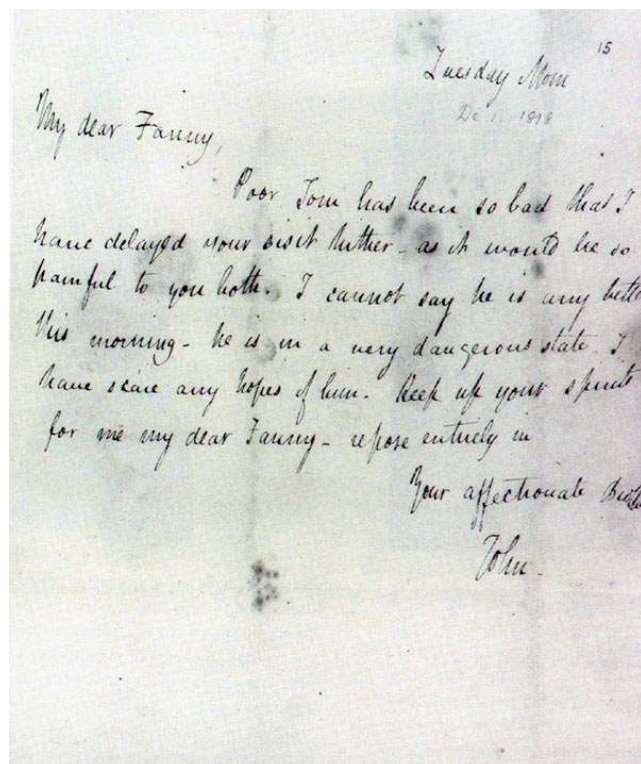 15
Tuesday Morn
De 1818
My dear Fanny,
Poor Tom has been so bad that I
have delayed your visit hither - as it would be so
painful to you both. I cannot say he is any bette
this morning - he is in a very dangerous state - I
have scarce any hopes of him - Keep up your spirits
for me my dear Fanny - repose entirely in
Your affectionate Broth
John.